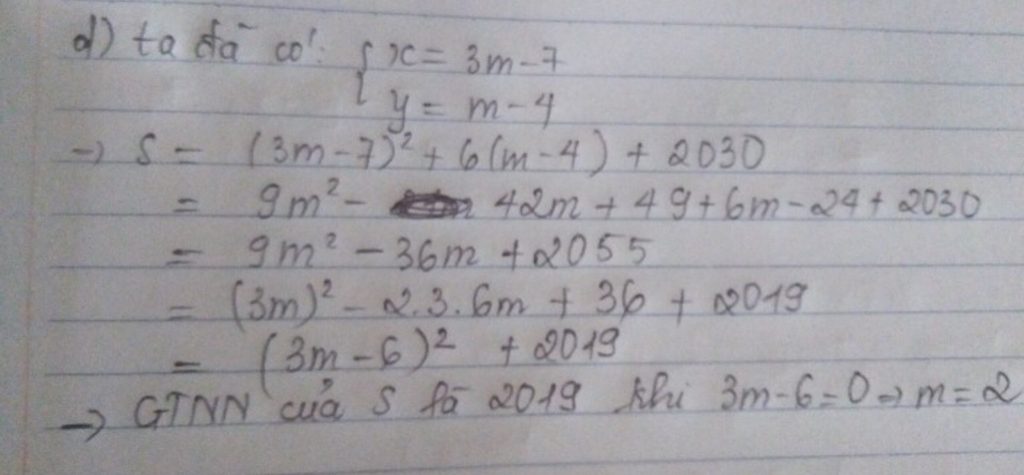 d) ta đã có: { x = 3m - 7
y = m - 4
→ S = (3m - 7)² + 6(m - 4) + 2030
= 9m² - 42m + 49 + 6m - 24 + 2030
= 9m² - 36m + 2055
= (3m)² - 2.3.6m + 36 + 2019
= (3m - 6)² + 2019
→ GTNN của S là 2019 khi 3m - 6 = 0 → m = 2